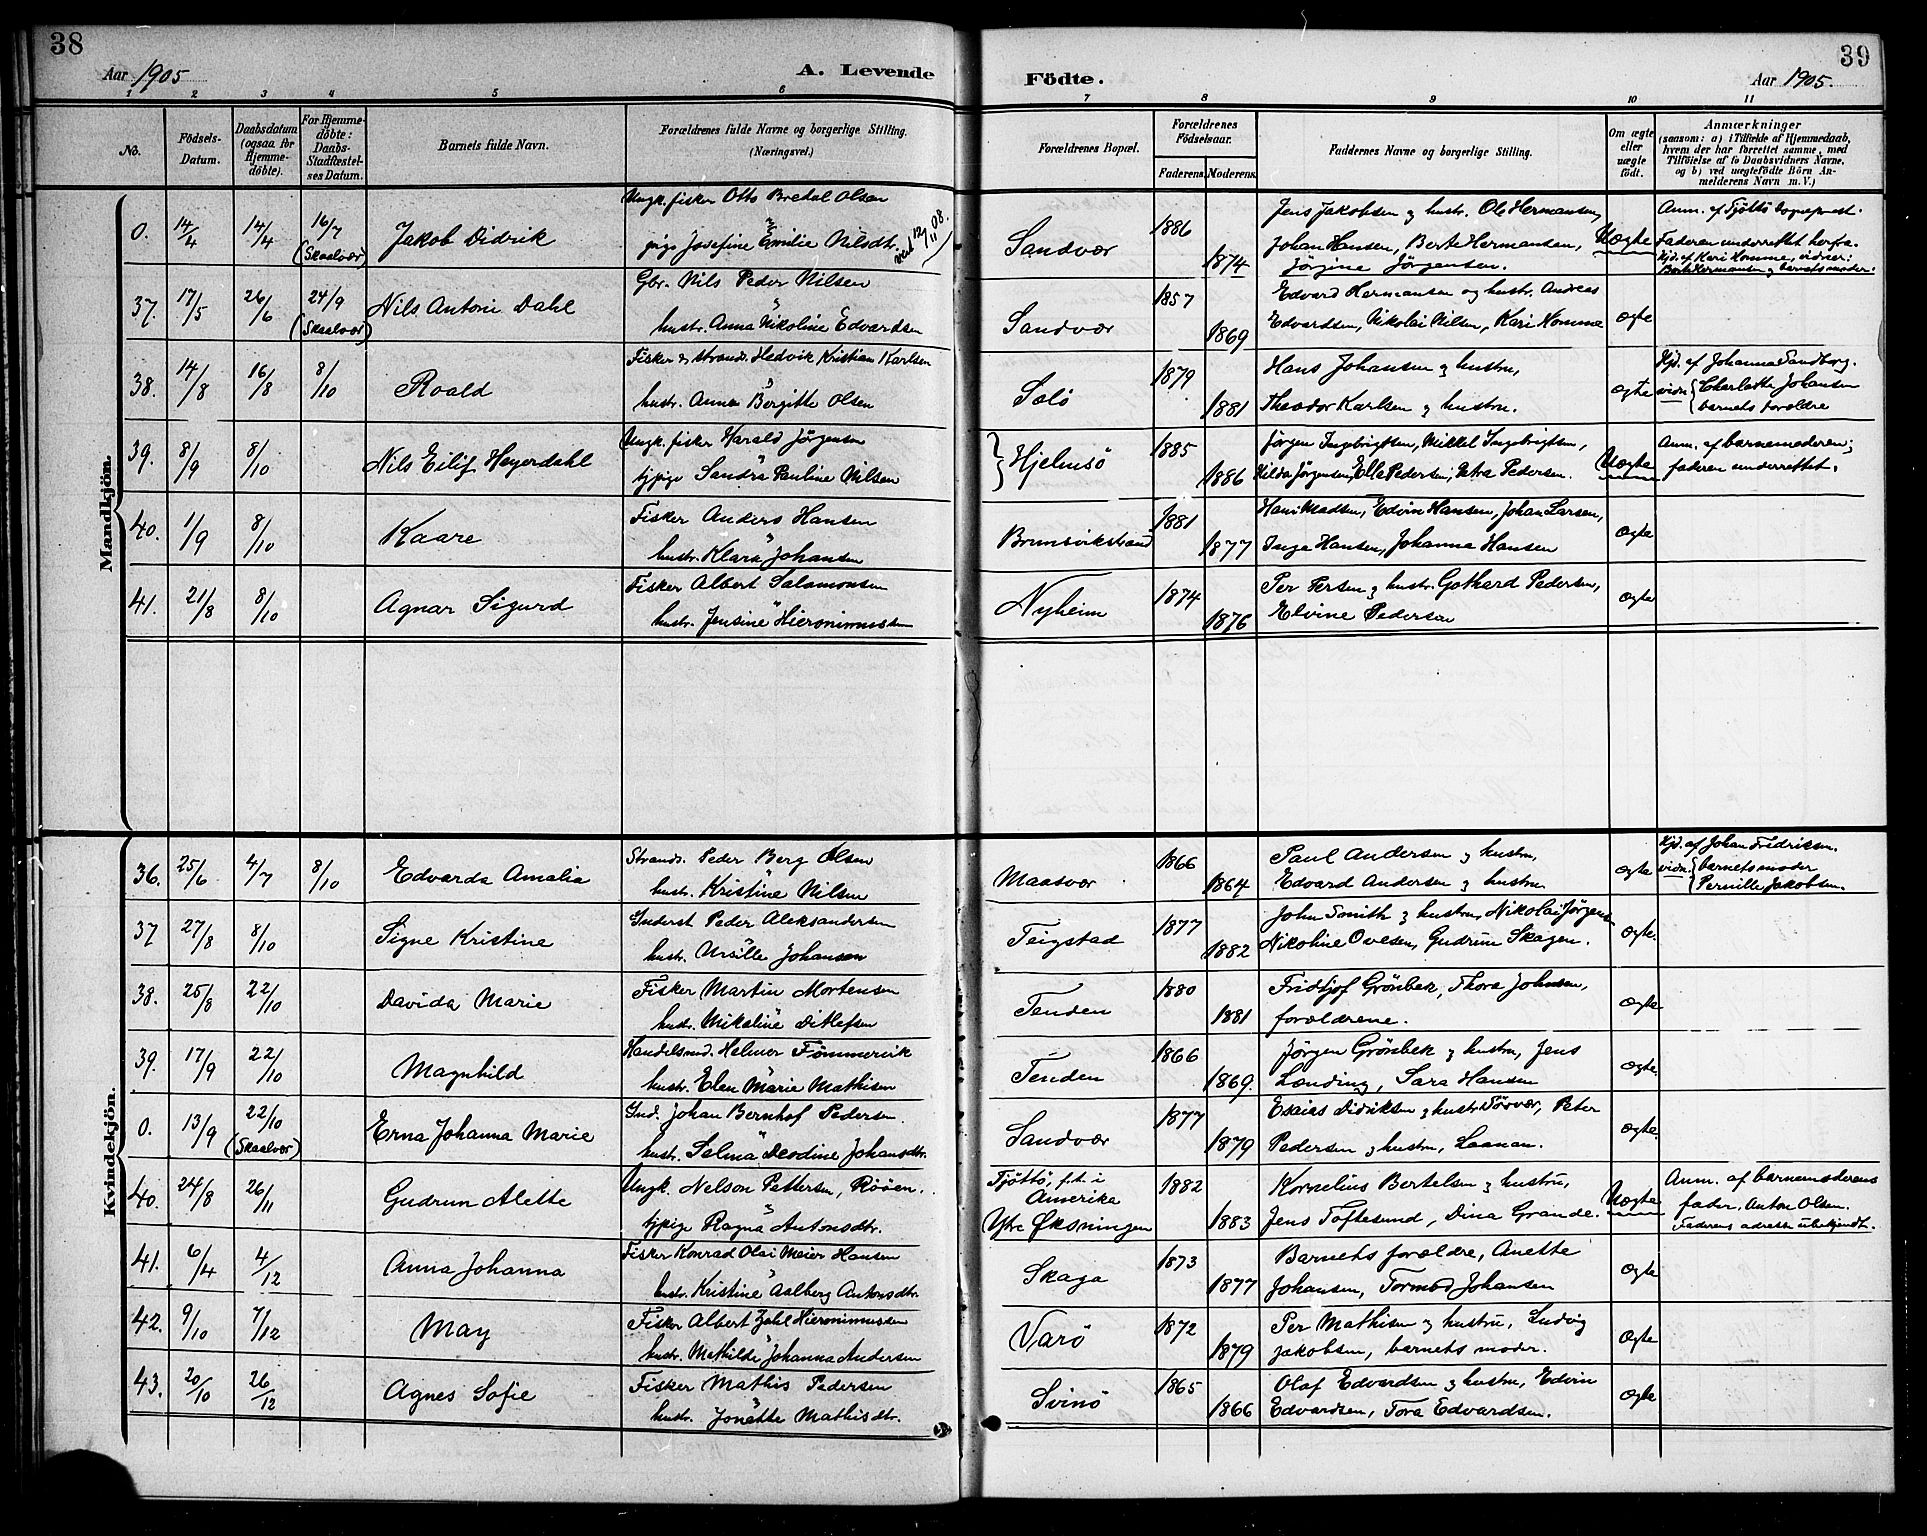 38
Aar 1905
A. Levende
1 2 3 4 5 6
No.
Födsels-
Datum.
Daabsdatum
(ogsaa for
Hjemme-
döbte).
For Hjemme-
döbte:
Daabs-
Stadfestel-
ses Datum.
Barnets fulde Navn.
Forældrenes fulde Navne og borgerlige Stilling.
(Næringsvei.)
Mandkjön.
0. 14/4 14/4 16/7 (Skaalvær) Jakob Didrik
Ungk. fisker Otto Bredal Olsen
pige Josefine Emilie Nilsdtr. viet 12/11 08.
37. 17/5 26/6 24/9 (Skaalvær) Nils Antoni Dahl
Gbr. Nils Peder Nilsen
hustr. Anna Nikoline Edvardsen
38. 14/8 16/8 8/10 Roald
Fisker & strands. Hedvik Kristian Karlsen
hustr. Anna Bergitte Olsen
39. 8/9 8/10 Nils Eilif Heyerdahl
Ungk. fisker Harald Jørgensen
tjpige Sandra Pauline Nilsen
40. 1/9 8/10 Kaare
Fisker Anders Hansen
hustr. Klara Johansen
41. 21/8 8/10 Agnar Sigurd
Fisker Albert Salamonsen
hustr. Jensine Hieronimussen
Kvindekjön.
36. 25/6 4/7 8/10 Edvarda Amalia
Strands. Peder Berg Olsen
hustr. Kristine Nilsen
37 27/8 8/10 Signe Kristine
Inderst Peder Aleksandersen
hustr. Ursille Johansen
38. 25/8 22/10 Davida Marie
Fisker Martin Mortensen
hustr. Mikaline Ditlefsen
39. 17/9 22/10 Magnhild
Handelsmd. Helmer Fømmervik
hustr. Elen Marie Mathisen
0. 13/9 22/10 (Skaalvær) Erna Johanna Marie
Ind. Johan Bernhof Pedersen
hustr. Selma Deodine Johansdtr.
40. 24/8 26/11 Gudrun Alette
Ungk. Nelson Pettersen, Røöen.
tjpige Ragna Antonsdtr.
41. 6/4 4/12 Anna Johanna
Fisker Konrad Olai Meier Hansen
hustr. Kristine Aalberg Antonsdtr.
42. 9/10 7/12 May
Fisker Albert Zahl Hieronimussen
hustr. Mathilde Johanna Andersen
43. 20/10 26/12 Agnes Sofie
Fisker Mathis Pedersen
hustr. Jonette Mathisdtr.
39
Födte.
Aar 1905.
7 8 9 10 11
Forældrenes Bopæl.
Forældrenes
Födselsaar.
Faderens. Moderens.
Faddernes Navne og borgerlige Stilling.
Om ægte
eller
uægte
født.
Anmærkninger
(saasom: a) i Tilfælde af Hjemmedaab,
hvem der har forrettet samme, med
Tilföielse af to Daabsvidners Navne,
og b) ved uægtefödte Börn An-
melderens Navn m. V.)
Sandvær 1886 1874
Jens Jakobsen & hustr. Ole Hermansen,
Johan Hansen, Berte Hermansen,
Jörgine Jörgensen.
Uægte
Anm. af Tjøtto sogneprest.
Faderen underrettet herfra.
Hjd. af Kari Homme, vidner:
Berte Hermansen & barnets moder.
Sandvær 1857 1869
Edvard Hermansen og hustr. Andreas
Edvardsen, Nikolai Nilsen, Kari Homme
ægte
Solö 1879 1881
Hans Johansen & hustru,
Theodor Karlsen & hustru.
ægte
Hjd. af Johanna Sandberg.
vidn. Charlotte Johansen
barnets forældre
Hjelmsö 1885 1886
Jørgen Ingebrigtsen, Mikkel Ingebrigtsen,
Hilda Jørgensen, Ella Pedersen, Petra Pedersen.
Uægte
Anm. af barnemoderen;
faderen underrettet.
Brunsvikstrand 1881 1877
Hans Madsen, Edvin Hansen, Johan Larsen,
Inga Hansen, Johanna Hansen
ægte
Nyheim 1874 1876
Per Persen & hustr. Gothard Pedersen,
Elvine Pedersen
ægte
Maasvær 1866 1864
Paul Andersen & hustru,
Edvard Andersen & hustru.
ægte
Hjd. af Johan Fredriksen.
vidn. barnets moder
Pernille Jakobsen.
Teigstad 1877 1882
John Smith & hustru, Nikolai Jørgens
Nikoline Ovesen, Gudrun Skagen.
ægte.
Tenden 1880 1881
Fridtjof Grönbek, Thora Johnsen,
forældrene.
ægte
Tenden 1866 1869.
Jørgen Grönbek & hustru, Jens
Lænding, Sara Hansen
ægte.
Sandvær 1877 1879
Esaias Didriksen & hustr. Törvær, Peter
Pedersen & hustru, Laanan.
ægte.
Tjøttö, f.t. i
Amerika
Ytre Øksningen 1882 1883
Kornelius Bertelsen & hustru,
Jens Toftesund, Dina Grande.
Uægte
Anm. af barnemoderens
fader, Anton Olsen.
Faderens adresse ubekjendt.
Skaga 1873 1877
Barnets forældre, Anette
Johansen, Tormod Johansen
ægte
Varö 1872 1879
Per Mathisen & hustru, Ludvig
Jakobsen, barnets moder.
ægte
Svinö 1865 1866
Olaf Edvardsen & hustru, Edvin
Edvardsen, Tora Edvardsen.
ægte